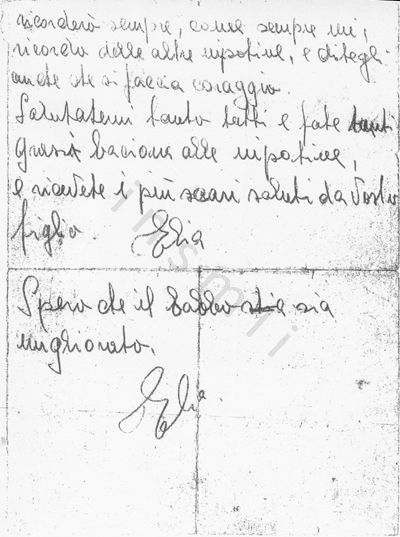 ricorderò sempre, come sempre mi,
ricordo delle altre nipotine, e ditegli
anche che si faccia coraggio.
Salutatemi tanto tutti e fate tanti
grossi bacioni alle nipotine,
e ricevete i più cari saluti da Vostro
figlio. Elia
Spero che il babbo sia
migliorato.
Elia.
insmli